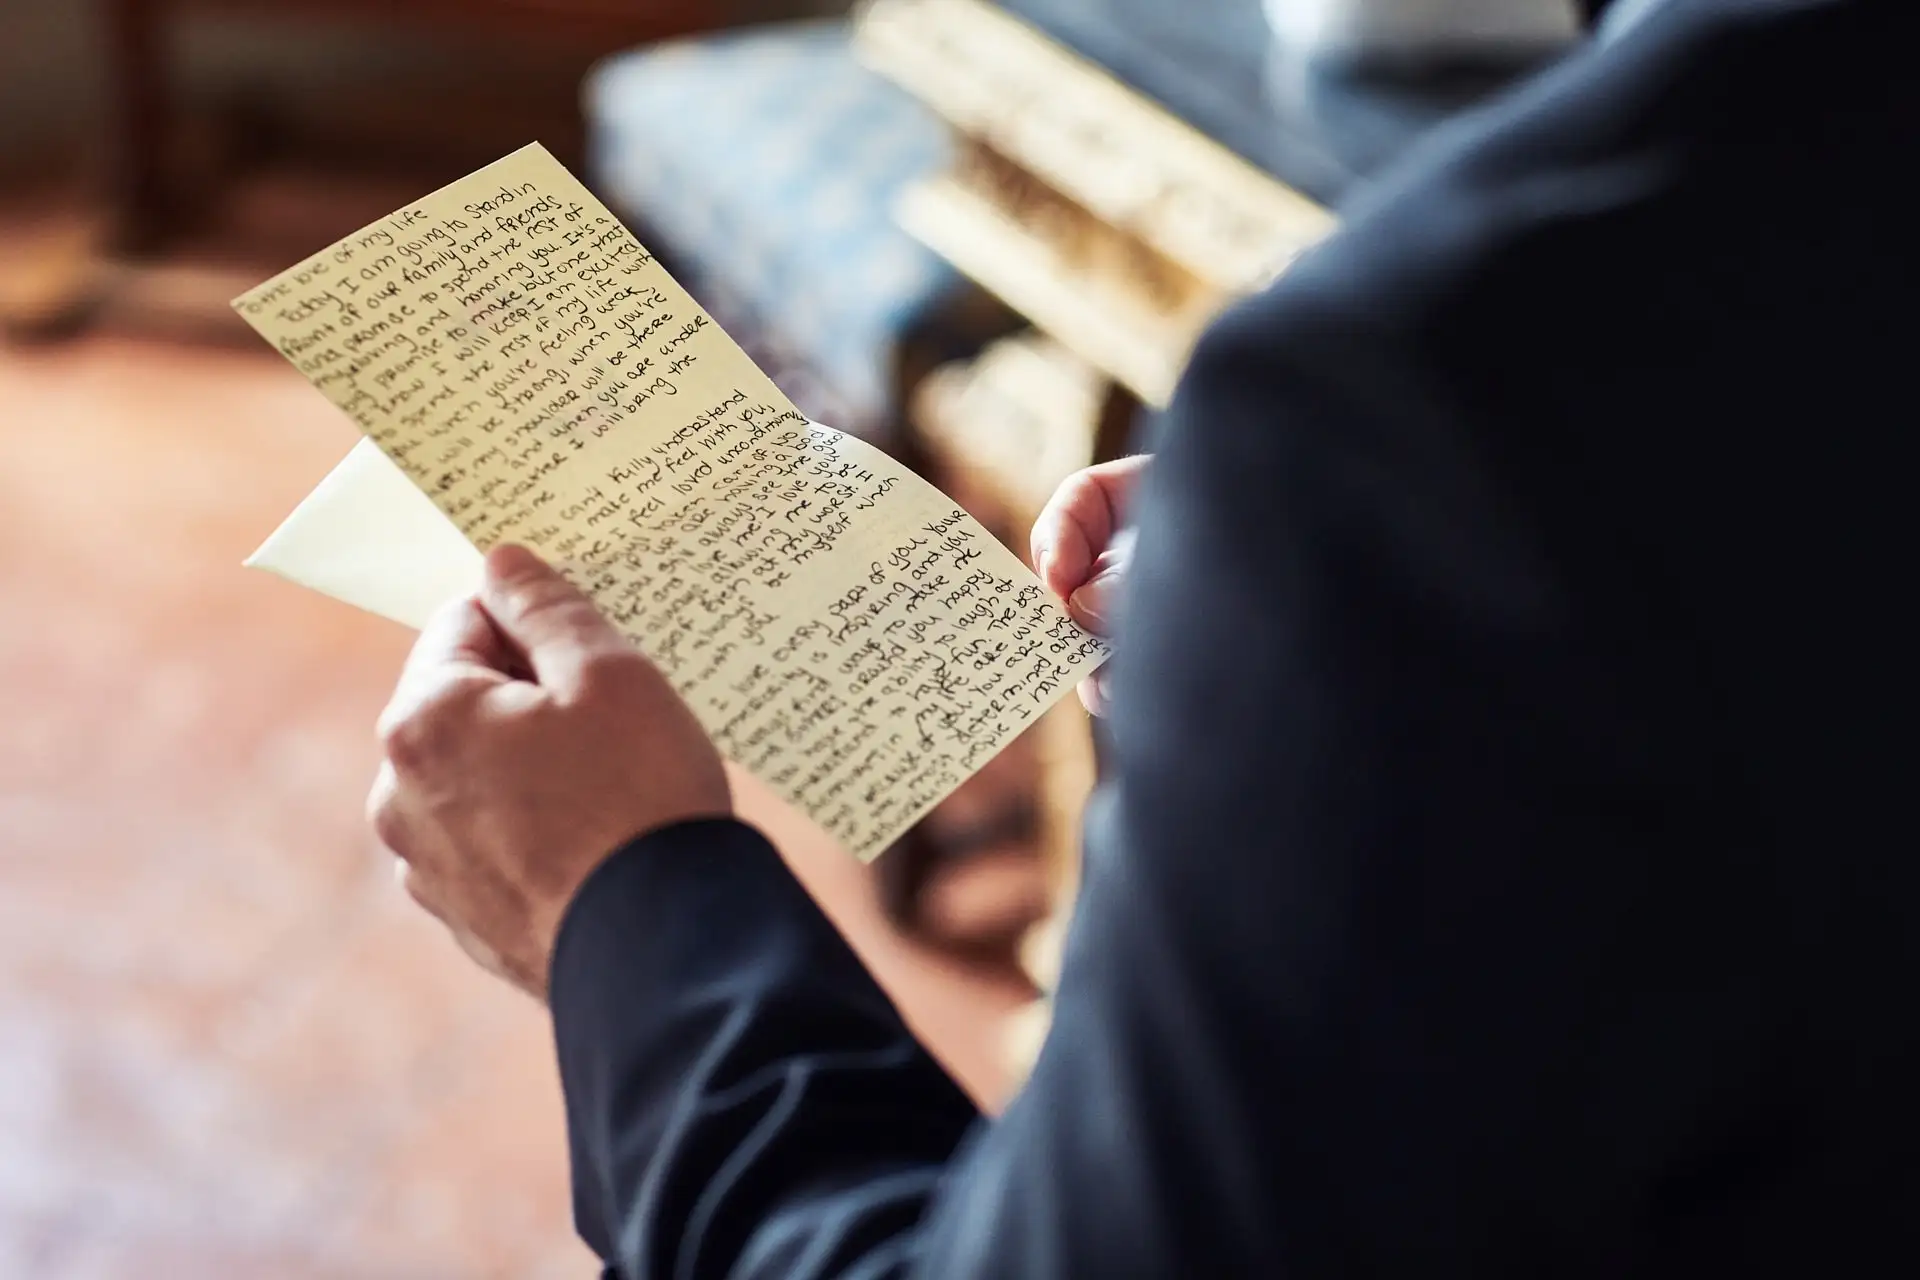 To the love of my life
Today I am going to stand in
front of our family and friends
and promise to spend the rest of
my loving and honoring you. It's a
big promise to make but one that
I know I will keep. I am excited
to spend the rest of my life with
you. When you're feeling weak,
I will be strong, when you're
my shoulder will be there
you and when you are under
the weather I will bring the
You can't fully understand
you make me feel. With you,
me. I feel loved unconditionally
always taken care of. No
if we are having a bad
you still always see the good
and love me. I love you
always allowing me to be
even at my worst. I
always be myself when
with you
I love every part of you. Your
generosity is inspiring and you
always find ways to make me
and others around you happy.
You have the ability to laugh at
and to have fun. The best
in my life are with
because of you. You are one
the most determined and
people I have ever